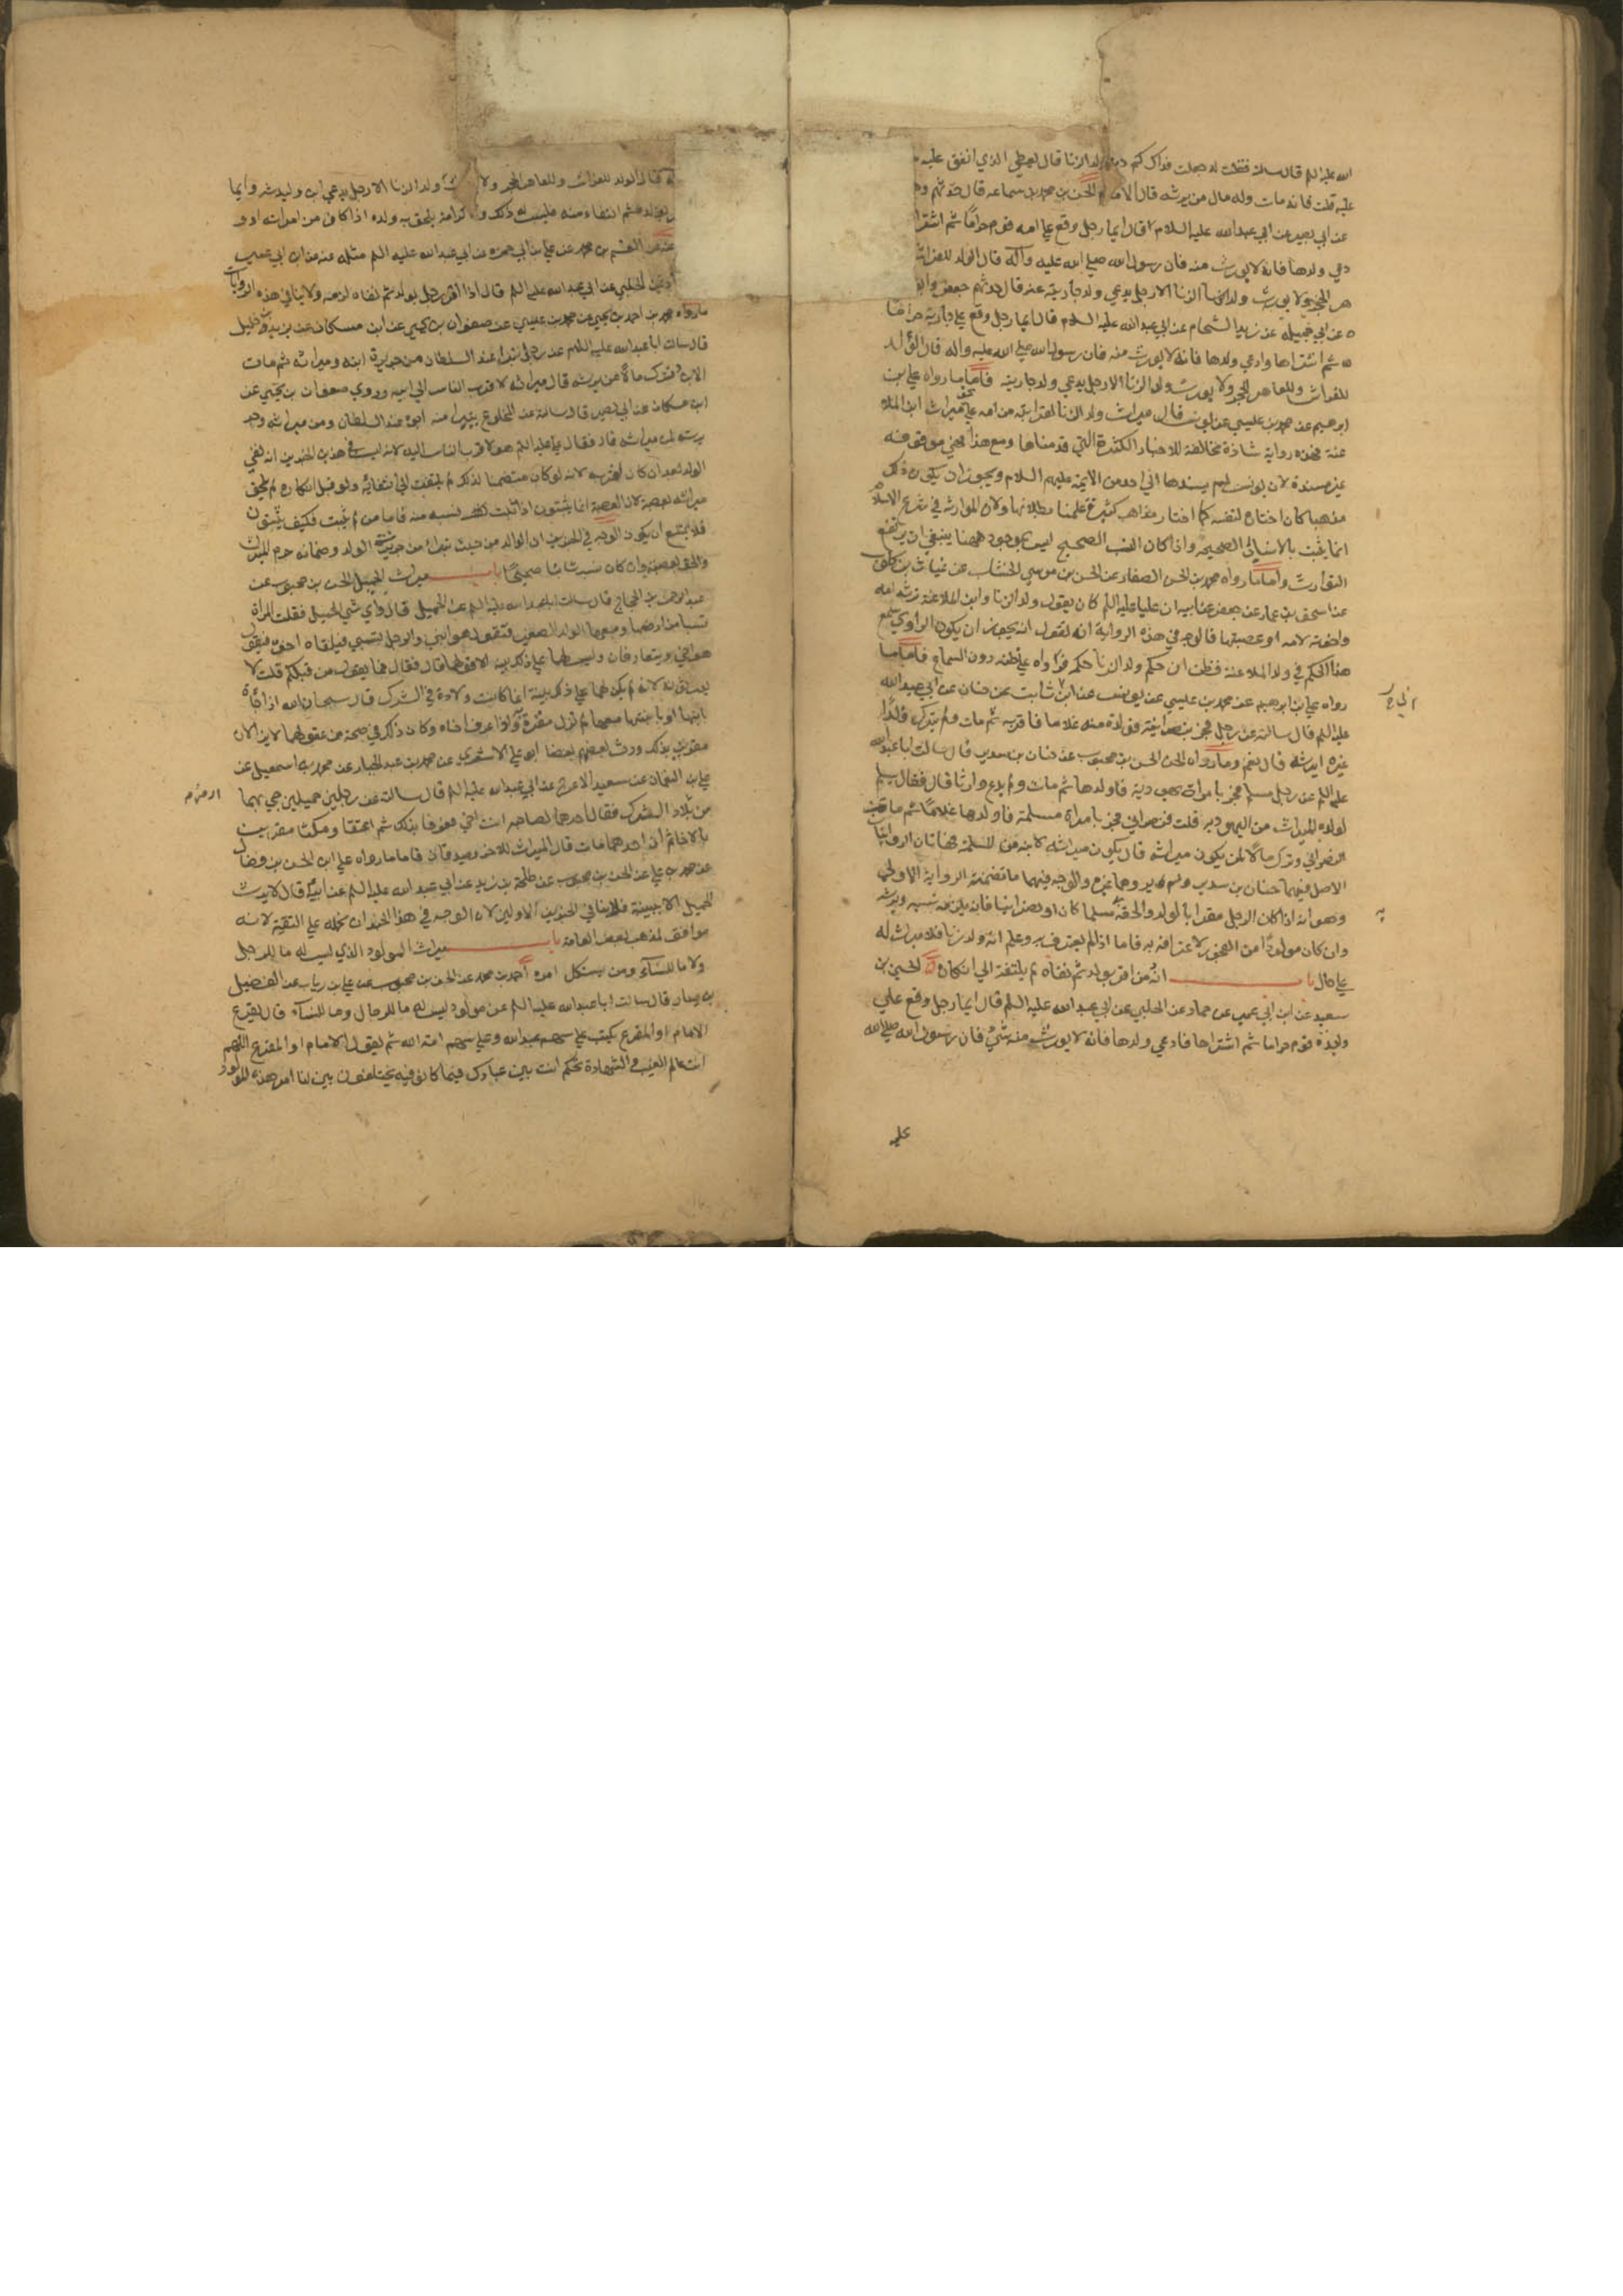 الله عليه السلم قال سالته فقلت له جعلت فداك كم دية ولد الزنا قال يعطي الذي انفق عليه ما
عليه قلت فانه مات وله مال من يرثه قال الامام الحسن بن محمد بن سماعه قال حدثهم وه
عن ابي بصير عن ابي عبد الله عليه السلام قال ايما رجل وقع علي امه قوم حراما ثم اشترا
دعي ولدها فانه لا يورث منه فان رسول الله صلي الله عليه وآله قال الولد للفراش
هر الحجر ولا يورث ولد الزنا الا رجل يدعي ولد جاريته عنه قال حدثهم جعفر وابو
ه عن ابي جميله عن زيد الشحام عن ابي عبد الله عليه السلام قال ايما رجل وقع علي جارية حراما
ه ثم اشتراها وادعي ولدها فانه لا يورث منه فان رسول الله صلي الله عليه واله قال الولد
للفراش وللعاهر الحجر ولا يورث ولد الزنا الا رجل يدعي ولد جاريته فاما ما رواه علي بن
ابرهيم عن محمد بن عيسي عن يونس قال ميراث ولد الزنا لقرابته من امه علي نحو ميراث ابن الملا
عنة فهذه رواية شاذة مخالفة للاخبار الكثيرة التي قدمناها ومع هذا فهي موقوفة
غير مسندة لان يونس لم يسندها الي احد من الايمة عليهم السلام ويجوز ان يكون ذلك
مذهبا كان اختاره لنفسه كما اختار مذاهب كثيرة علمنا بطلانها ولان الموارثه في شرع الاسلام
انما يثبت بالانساب الصحيحه واذا كان النسب الصحيح ليس بموجود ههنا ينبغي ان يرتفع
التوارث واما ما رواه محمد بن الحسن الصفار عن الحسن بن موسي الخشاب عن غياث بن كلوب
عن اسحق بن عمار عن جعفر عن ابيه ان عليا عليه السلم كان يقول ولد الزنا وابن الملاعنة ترثه امه
واخوته لامه او عصبتها فالوجه في هذه الرواية ان نقول انه يجوز ان يكون الراوي سمع
هذا الحكم في ولد الملاعنة فظن ان حكم ولد الزنا حكمه فرواه علي ظنه دون السماع فاما ما
رواه علي بن ابرهيم عن محمد بن عيسي عن يونس عن ابن ثابت عن حنان عن ابي عبد الله
عليه السلم قال سالته عن رجل فجر بنصرانية فولدت منه غلاما فاقر به ثم مات ولم يترك ولدا
غيره ايرثه قال نعم وما رواه الحسن بن محبوب عن حنان بن سدير قال سالت ابا عبد الله
عليه السلم عن رجل مسلم فجر بامراة يهودية فاولدها ثم مات ولم يدع وارثا قال فقال يسلم
لولده الميراث من اليهودية قلت فنصراني فجر بامراة مسلمة فاولدها غلاما ثم مات
النصراني وترك مالا لمن يكون ميراثه قال يكون ميراثه لابنه من المسلمة فهاتان الروايتان
الاصل فيهما حنان بن سدير ولم يروهما غيره والوجه فيهما ما تضمنته الرواية الاولي
وهو انه اذا كان الرجل مقرا بالولد والحقه به مسلما كان او نصرانيا فانه يلزمه نسبه ويرثه
وان كان مولودا من الفجور لاعترافه به فاما اذا لم يعترف به وعلم انه ولد زنا فلا ميراث له
علي حال باب انه من اقر بولد ثم نفاه لم يلتفت الي انكاره الحسين بن
سعيد عن ابن ابي عمير عن حماد عن الحلبي عن ابي عبد الله عليه السلم قال ايما رجل وقع علي
وليدة قوم حراما ثم اشتراها فادعي ولدها فانه لا يورث منه شيء فان رسول الله صلي الله
علي
قال الولد للفراش وللعاهر الحجر ولا يورث ولد الزنا الا رجل يدعي ابن وليدته وايما
ثم انتفا منه فليس له ذلك ولا كرامة يلحق به ولده اذا كان من امراته او و
عنه عن القسم بن محمد عن علي بن ابي حمزه عن ابي عبد الله عليه السلم مثله عنه عن ابن ابي عمير
عن الحلبي عن ابي عبد الله عليه السلم قال اذا اقر رجل بولد ثم نفاه لزمه ولا ينافي هذه الروايات
ما رواه محمد بن احمد بن يحيي عن محمد بن عيسي عن صفوان بن يحيي عن ابن مسكان عن بريد بن خليل
قال سالت ابا عبد الله عليه السلام عن رجل تبرا عند السلطان من جريرة ابنه وميراثه ثم مات
الابن وترك مالا من يرثه قال ميراثه لاقرب الناس الي ابيه وروي صفوان بن يحيي عن
ابن مسكان عن ابي بصير قال سالته عن المخلوع يتبرا منه ابوه عند السلطان ومن ميراثه وجر
يرته لمن ميراثه قال فقال علي عليه السلم هو لاقرب الناس اليه لانه ليس في هذين الخبرين انه نفي
الولد بعد ان كان اقر به لانه لو كان متضمنا لذلك لم يلتفت الي انتفائه ولو قبل انكاره لم يلحق
ميراثه بعصبة لان العصبة انما يثبتون اذا ثبت نسبه منه فاما من لم يثبت فكيف يثبتون
فلا يمتنع ان يكون الوجه في الخبرين ان الوالد من حيث تبرا من جريرة الولد وضمانه حرم الميراث
والحق بعصبته وان كان نسبه ثابتا صحيحا باب ميراث الحميل الحسن بن محبوب عن
عبد الرحمن بن الحجاج قال سالت ابا عبد الله عليه السلم عن الحميل قال واي شي الحميل فقلت المراة
تسبا من ارضها ومعها الولد الصغير فتقول هو ابني والرجل يسبي فيلقاه اخوه فيقول
هو اخي ويتعارفان وليس لهما علي ذلك بينة الا قولهما قال فقال فما يقول من قبلكم قلت لا
يورثونه لانه لم يكن لهما علي ذلك بينة انما كانت ولادة في الشرك قال سبحان الله اذا جاءت
بابنها او بابنتها معها لم تزل مقرة واذا عرف اخاه وكان ذلك في صحة من عقولهما لا يزالان
مقرين بذلك ورث بعضهم بعضا ابو علي الاشعري عن محمد بن عبد الجبار عن محمد بن اسمعيل عن
علي بن النعمان عن سعيد الاعرج عن ابي عبد الله عليه السلم قال سالته عن رجلين حميلين جي بهما
من بلاد الشرك فقال احدهما لصاحبه انت اخي فعرفا بذلك ثم اعتقا ومكثا مقرين
بالاخاء ثم ان احدهما مات قال الميراث للاخر يصدقان فاما ما رواه علي بن الحسن بن فضال
عن محمد بن علي عن الحسن بن محبوب عن طلحة بن زيد عن ابي عبد الله عليه السلم عن ابيه قال لا يورث
الحميل الا ببينة فلا ينافي الخبرين الاولين لان الوجه في هذا الخبر ان نحمله علي التقية لانه
موافق لمذهب بعض العامة باب ميراث المولود الذي ليس له ما للرجل
ولا ما للنساء ومن يشكل امره احمد بن محمد عن الحسن بن محبوب عن علي بن رياب عن الفضيل
بن يسار قال سالت ابا عبد الله عليه السلم عن مولود ليس له ما للرجال وما للنساء قال يقرع
الامام او المقرع يكتب علي سهم عبد الله وعلي سهم امة الله ثم يقول الامام او المقرع اللهم
انت عالم الغيب والشهادة تحكم انت بين عبادك فيما كانوا فيه يختلفون بين لنا امر هذا المولود